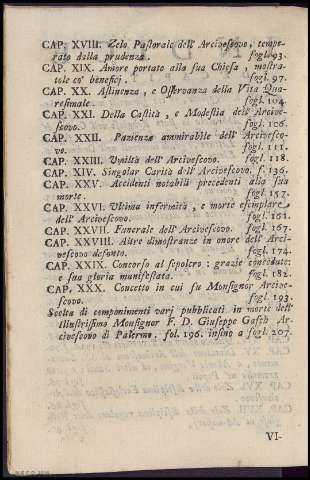 CAP. XVIII. Zelo Pastorale dell' Arcivescovo, tempe-
rato dalla prudenza. fogl. 93.
CAP. XIX. Amore portato alla sua Chiesa, mostra-
tole co' beneficj. fogl. 97.
CAP. XX. Astinenza, e Osservanza della Vita Qua-
resimale. fogl. 104.
CAP. XXI. Della Castità, e Modestia dell' Arcive-
scovo. fogl. 106.
CAP. XXII. Pazienza ammirabile dell' Arcivesco-
vo. fogl. 111.
CAP. XXIII. Umiltà dell' Arcivescovo. fogl. 118.
CAP. XIV. Singolar Carità dell' Arcivescovo. f. 136.
CAP. XXV. Accidenti notabili precedenti alla sua
morte. fogl. 157.
CAP. XXVI. Ultima infermità, e morte esemplare
dell' Arcivescovo. fogl. 161.
CAP. XXVII. Funerale dell' Arcivescovo. fogl. 167.
CAP. XXVIII. Altre dimostranze in onore dell' Arci-
vescovo defonto. fogl. 174.
CAP. XXIX. Concorso al sepolcro: grazie concedute:
e sua gloria manifestata. fogl. 182.
CAP. XXX. Concetto in cui fu Monsignor Arcive-
scovo. fogl. 193.
Scelta di componimenti varj pubblicati in morte dell'
Illustrissimo Monsignor F. D. Giuseppe Gasch Ar-
civescovo di Palermo, fol. 196. insino a fogl. 207.
VI-